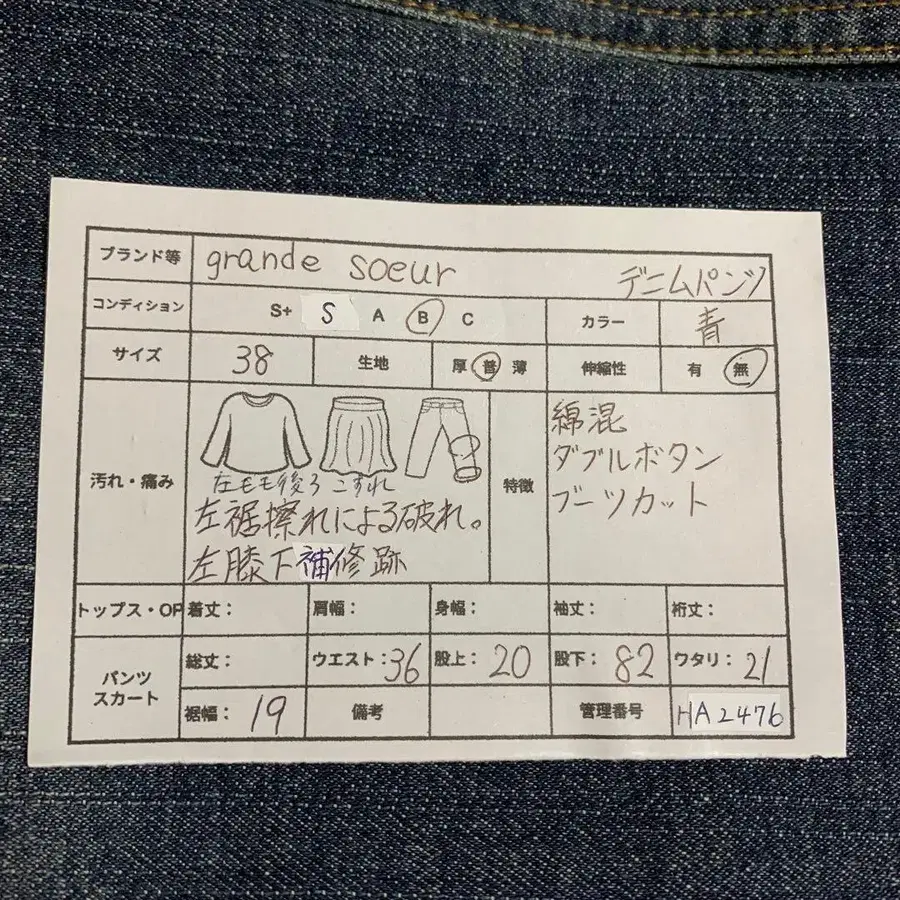 ブランド等 grande soeur デニムパンツ
コンディション S+ S A B C カラー 青
サイズ 38 生地 厚 普 薄 伸縮性 有 無
汚れ・痛み
左モモ後ろ こすれ
左裾擦れによる破れ。
左膝下補修跡
特徴
綿混
ダブルボタン
ブーツカット
トップス・OP 着丈： 肩幅： 身幅： 袖丈： 裄丈：
パンツ
スカート
総丈： ウエスト：36 股上：20 股下：82 ワタリ：21
裾幅：19 備考 管理番号 HA2476